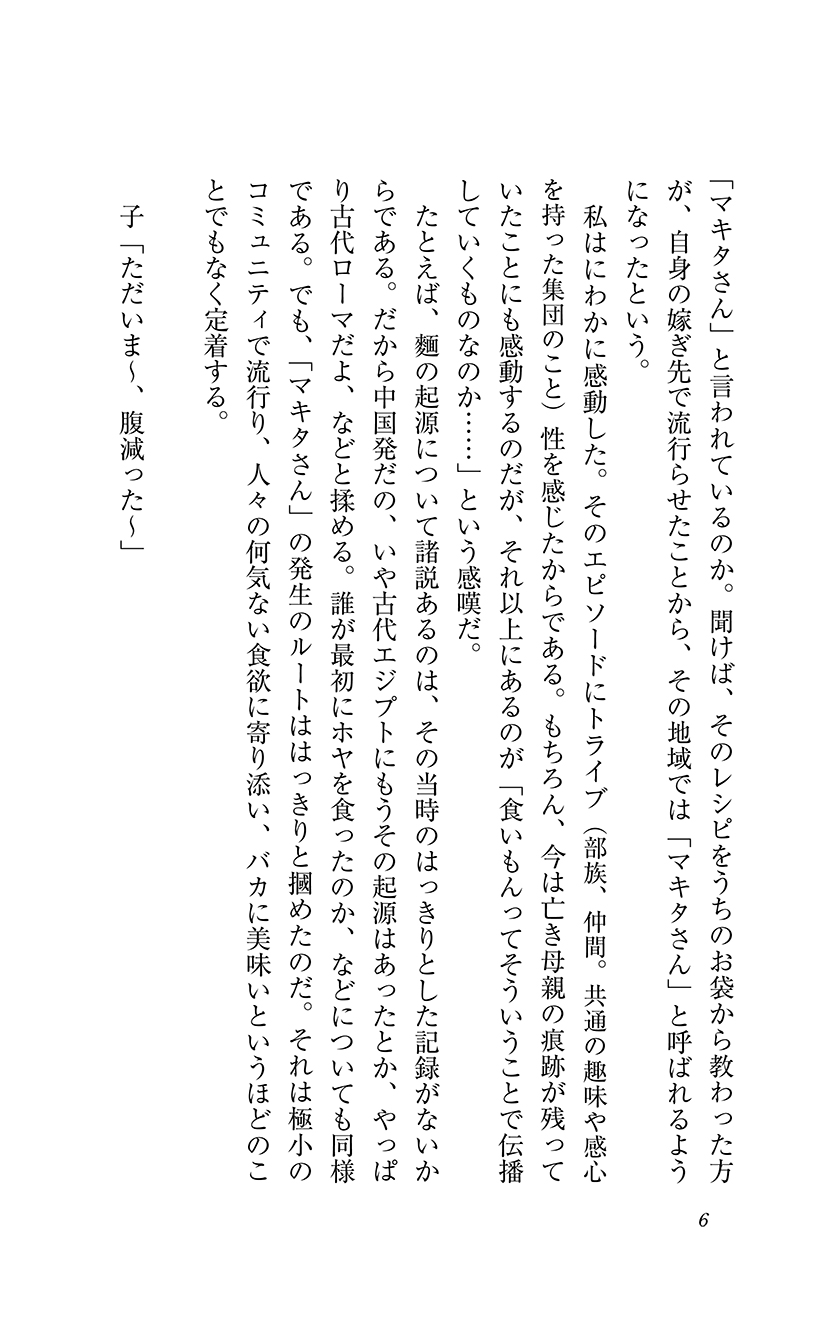 「マキタさん」と言われているのか。聞けば、そのレシピをうちのお袋から教わった方
が、自身の嫁ぎ先で流行らせたことから、その地域では「マキタさん」と呼ばれるよう
になったという。
私はにわかに感動した。そのエピソードにトライブ（部族、仲間。共通の趣味や感心
を持った集団のこと）性を感じたからである。もちろん、今は亡き母親の痕跡が残って
いたことにも感動するのだが、それ以上にあるのが「食いもんってそういうことで伝播
していくものなのか……」という感嘆だ。
たとえば、麵の起源について諸説あるのは、その当時のはっきりとした記録がないか
らである。だから中国発だの、いや古代エジプトにもうその起源はあったとか、やっぱ
り古代ローマだよ、などと揉める。誰が最初にホヤを食ったのか、などについても同様
である。でも、「マキタさん」の発生のルートははっきりと摑めたのだ。それは極小の
コミュニティで流行り、人々の何気ない食欲に寄り添い、バカに美味いというほどのこ
とでもなく定着する。
子「ただいま〜、腹減った〜」
6